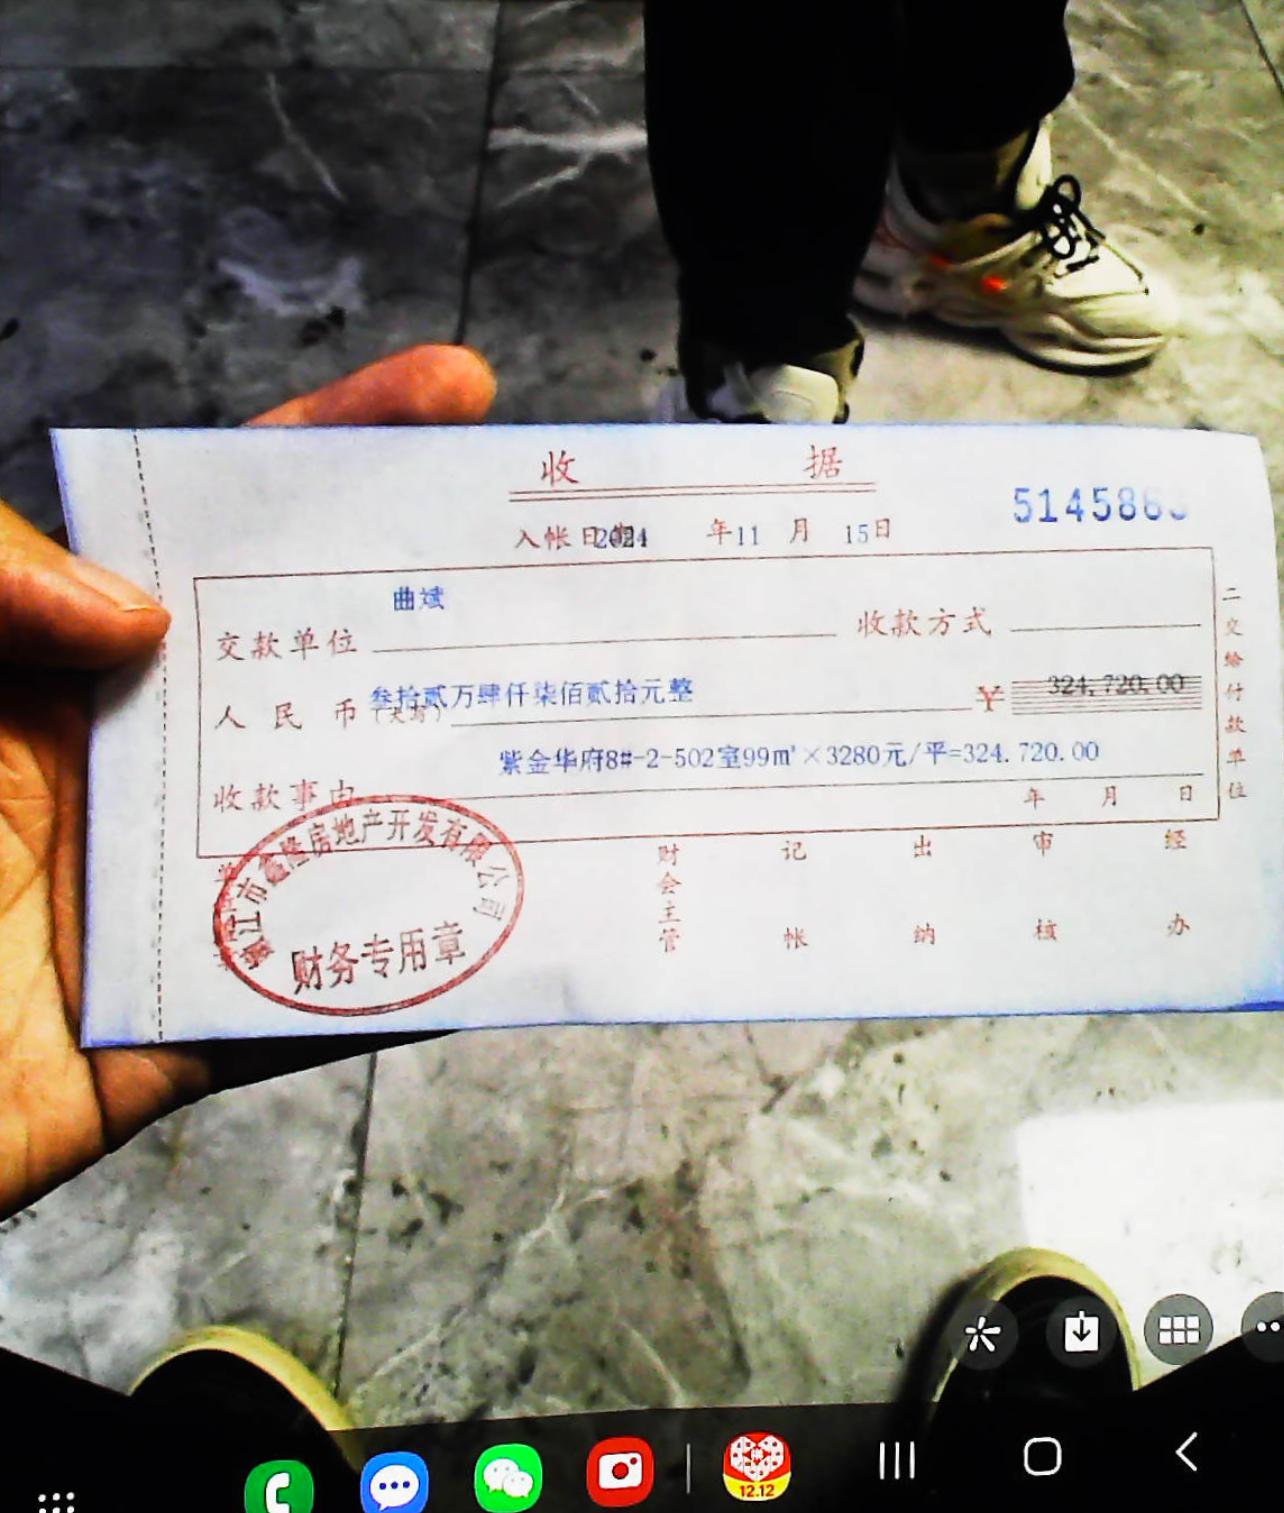 收 据
5145863
入帐日期2024 年11 月 15日
曲斌
交款单位 收款方式
叁拾贰万肆仟柒佰贰拾元整
人民币(大写) ¥ 324,720.00
紫金华府8#-2-502室99㎡×3280元/平=324.720.00
收款事由
年 月 日
二交给付款单位
财会主管 记帐 出纳 审核 经办
江市鑫隆房地产开发有限公司
财务专用章
12.12